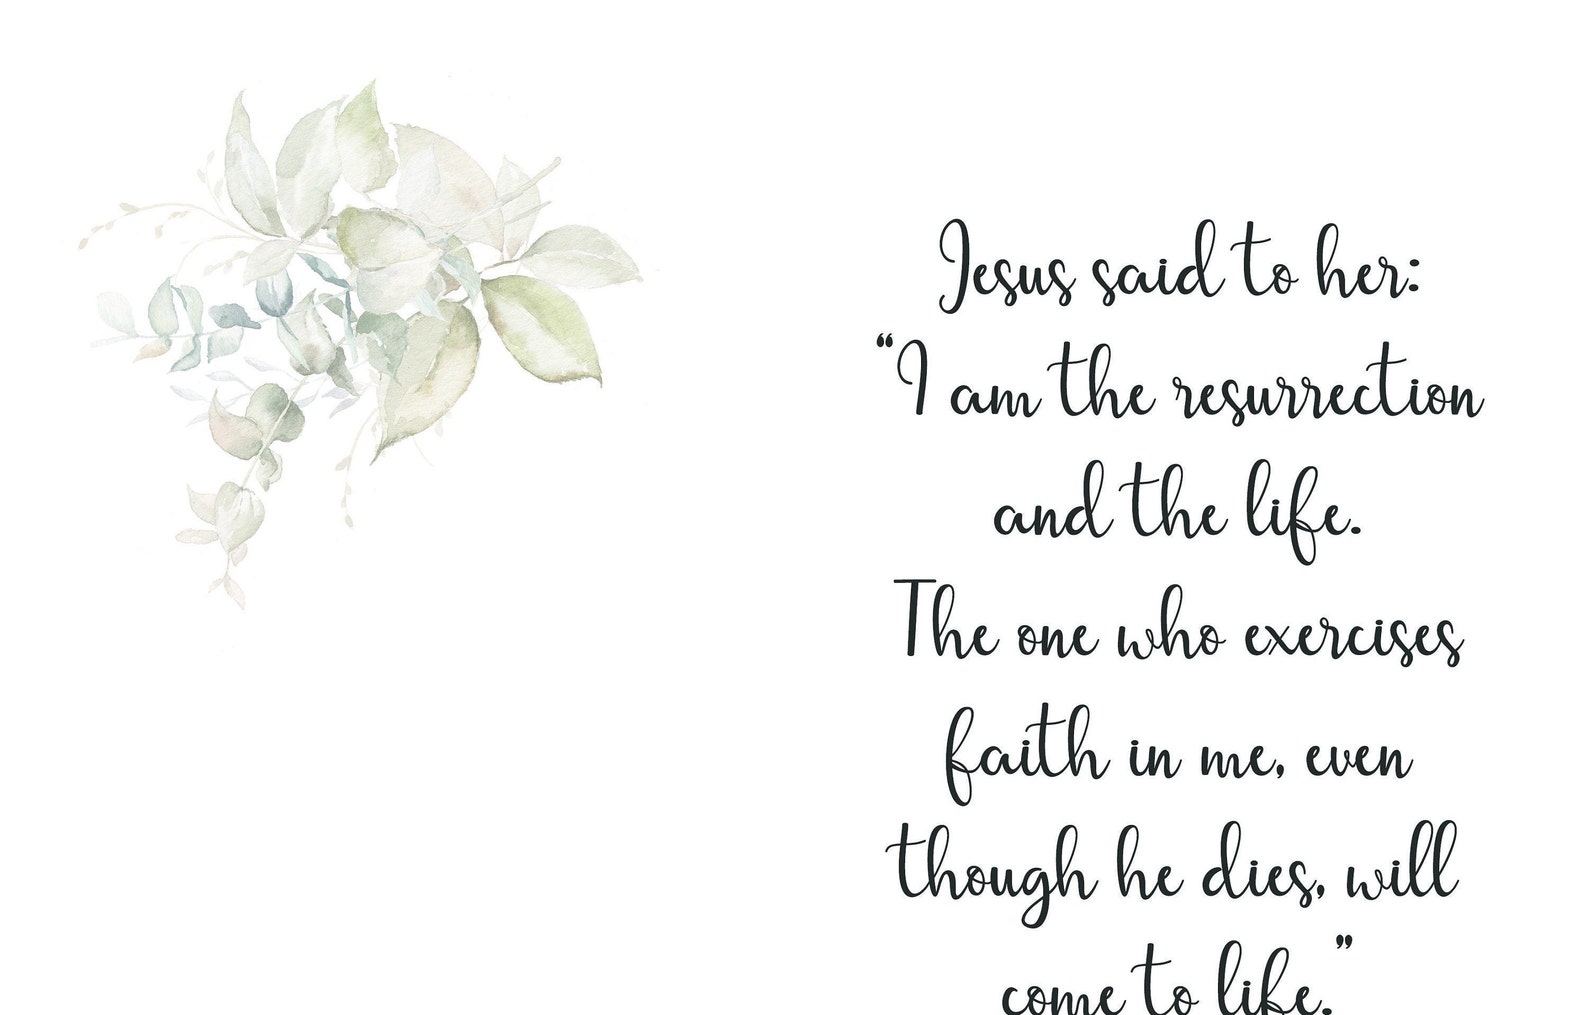 Jesus said to her:
“I am the resurrection
and the life.
The one who exercises
faith in me, even
though he dies, will
come to life.”